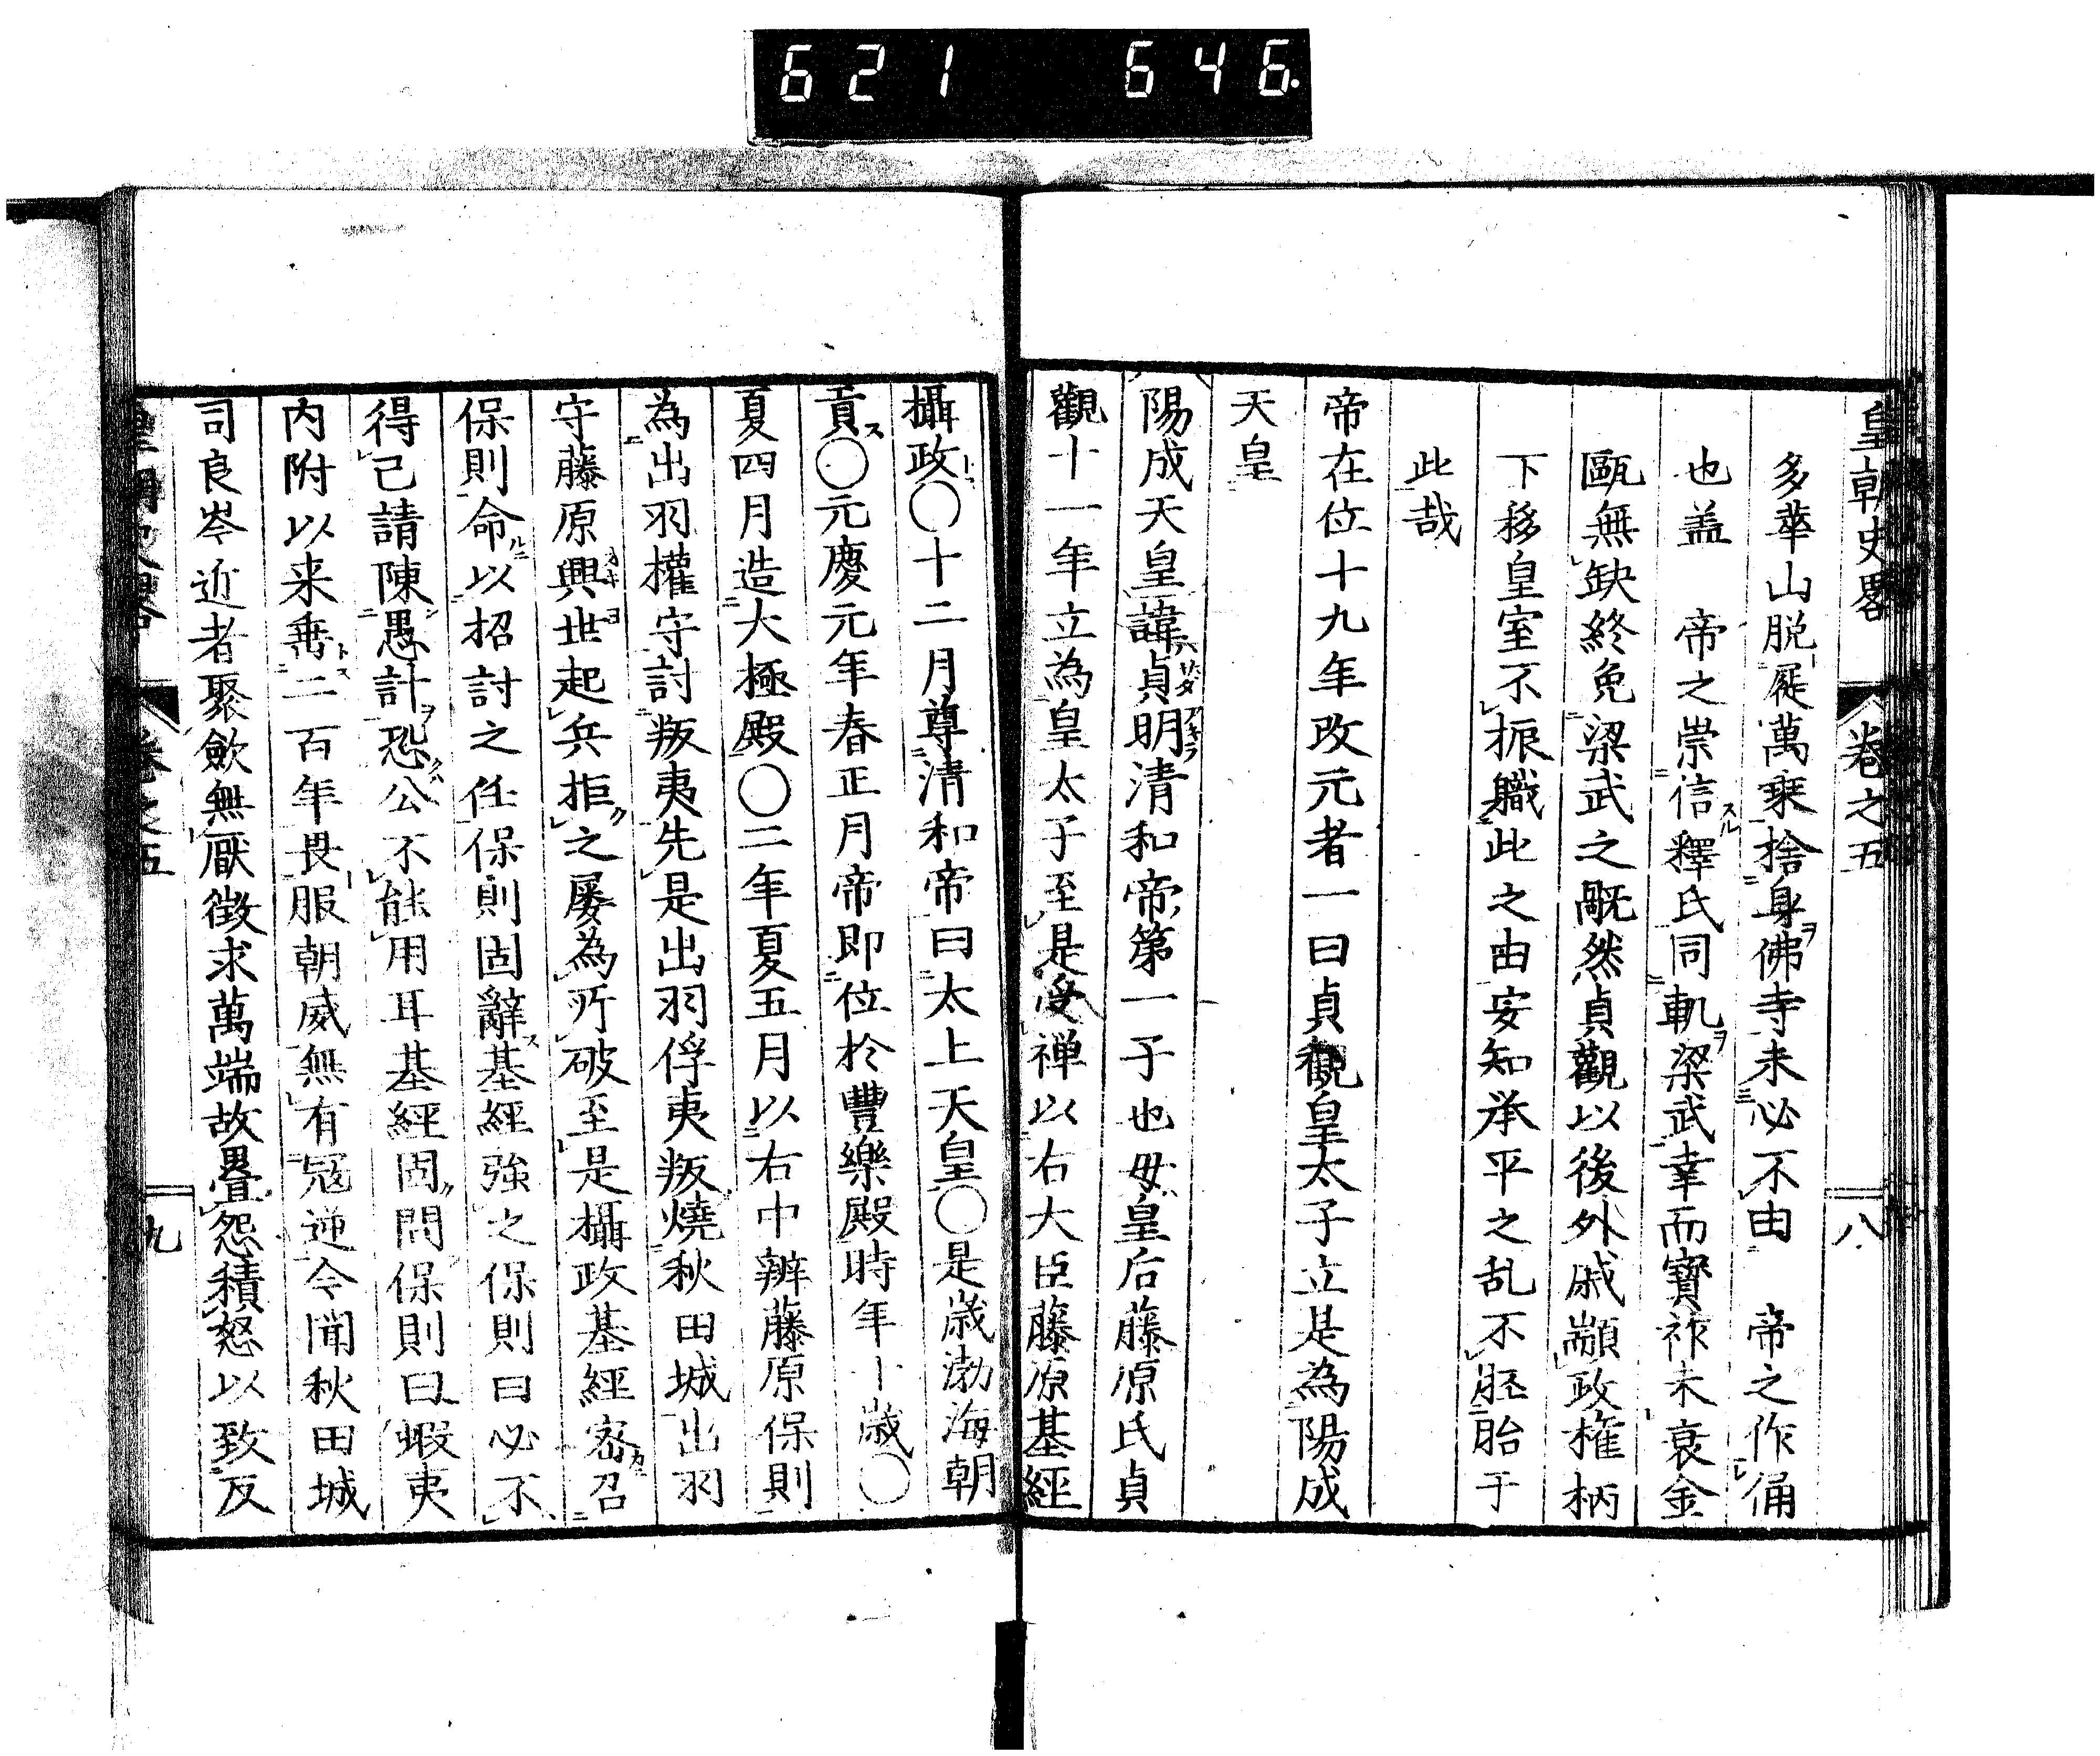 621 646.
皇朝史畧 卷之五 八
多華山脱屣萬乘捨身佛寺未必不由 帝之作俑
也盖 帝之崇信釋氏同軌梁武幸而寳祚未衰金
甌無缺終免梁武之厩然貞觀以後外戚顓政権柄
下移皇室不振職此之由安知承平之乱不胚胎于
此哉
帝在位十九年改元者一曰貞觀皇太子立是為陽成
天皇
陽成天皇諱貞明清和帝第一子也母皇后藤原氏貞
觀十一年立為皇太子至是受禅以右大臣藤原基經
攝政〇十二月尊清和帝曰太上天皇〇是歳渤海朝
貢〇元慶元年春正月帝即位於豐樂殿時年十歳〇
夏四月造大極殿〇二年夏五月以右中辨藤原保則
為出羽權守討叛夷先是出羽俘夷叛燒秋田城出羽
守藤原興世起兵拒之屡為所破至是攝政基經密召
保則命以招討之任保則固辭基經強之保則曰必不
得已請陳愚計恐公不能用耳基經固問保則曰蝦夷
内附以来垂二百年畏服朝威無有冦逆今聞秋田城
司良岑近者聚歛無厭徴求萬端故畳怨積怒以致反
皇朝史畧 卷之五 九